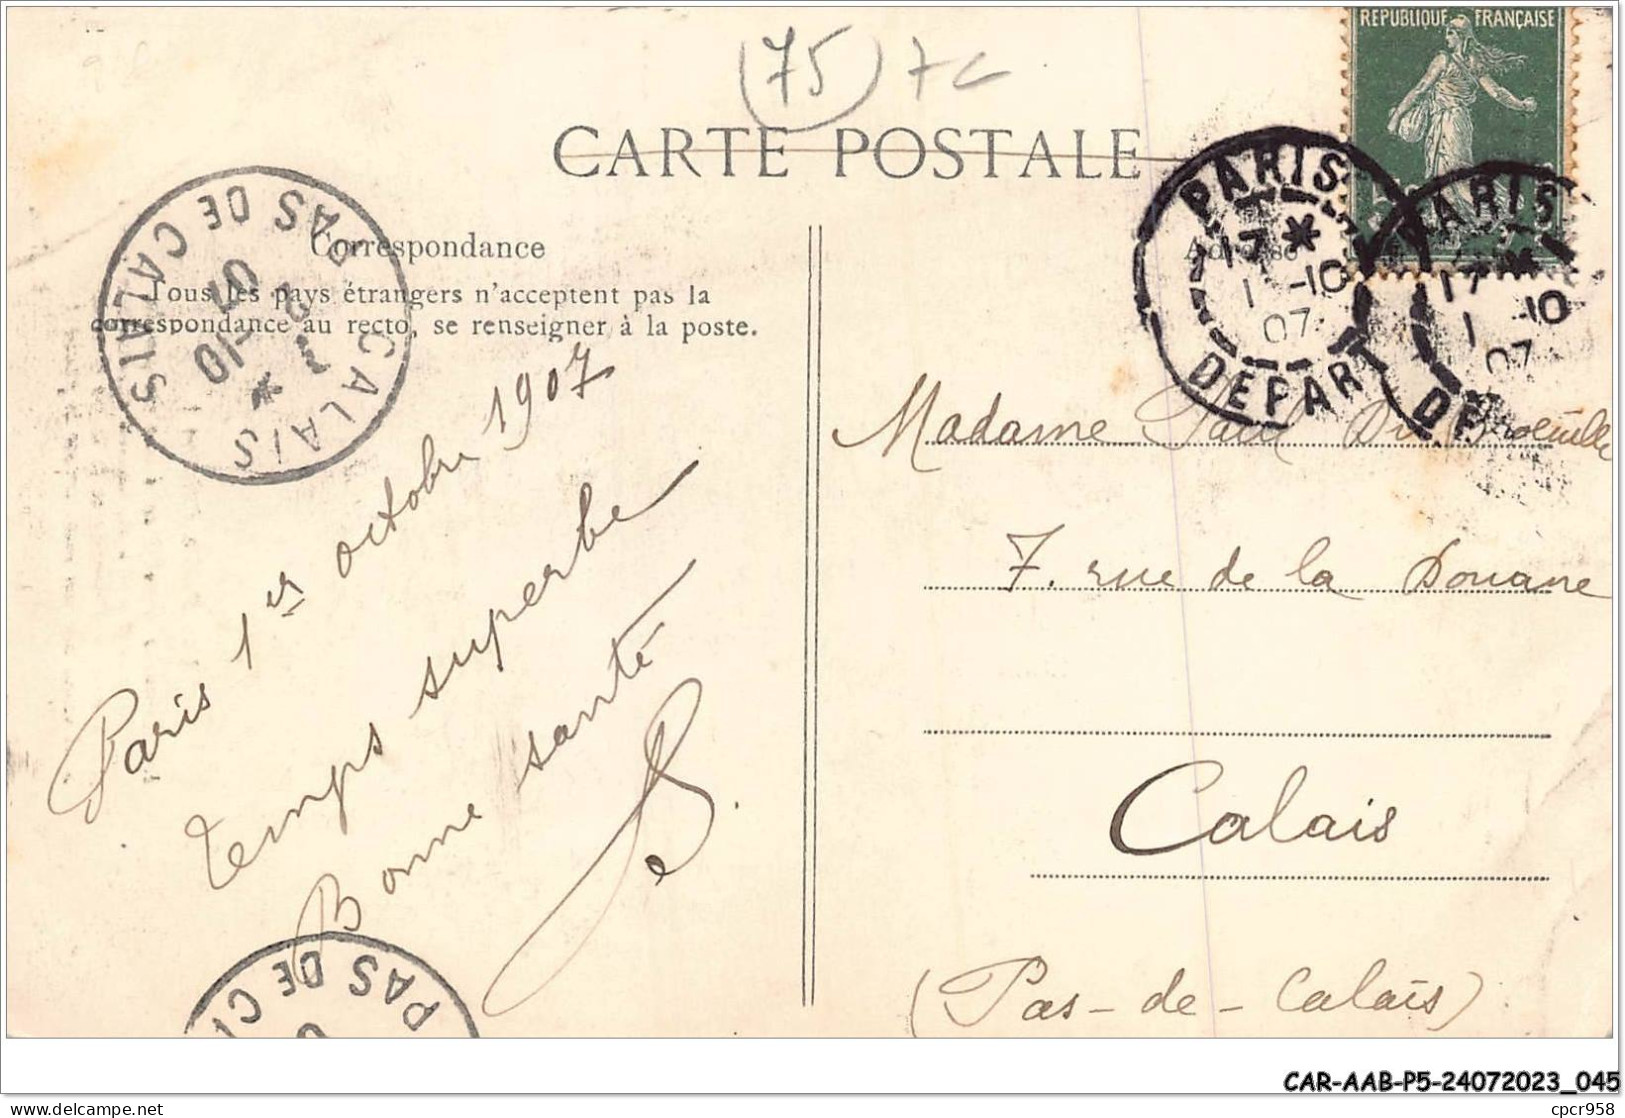 (75) 7c
REPUBLIQUE FRANÇAISE
CARTE POSTALE
Correspondance
Tous les pays étrangers n'acceptent pas la
correspondance au recto, se renseigner à la poste.
CALAIS
PAS DE CALAIS
10
07
Paris 1er octobre 1907
Temps superbe
Bonne santé
PAS DE C
PARIS
17 *
1 -10
07
DEPART
PARIS
17 *
1 -10
07
DE
Adresse
Madame Paul
7. rue de la Douane
Calais
(Pas-de-Calais)
CAR-AAB-P5-24072023_045
delcampe.net
cpcr958